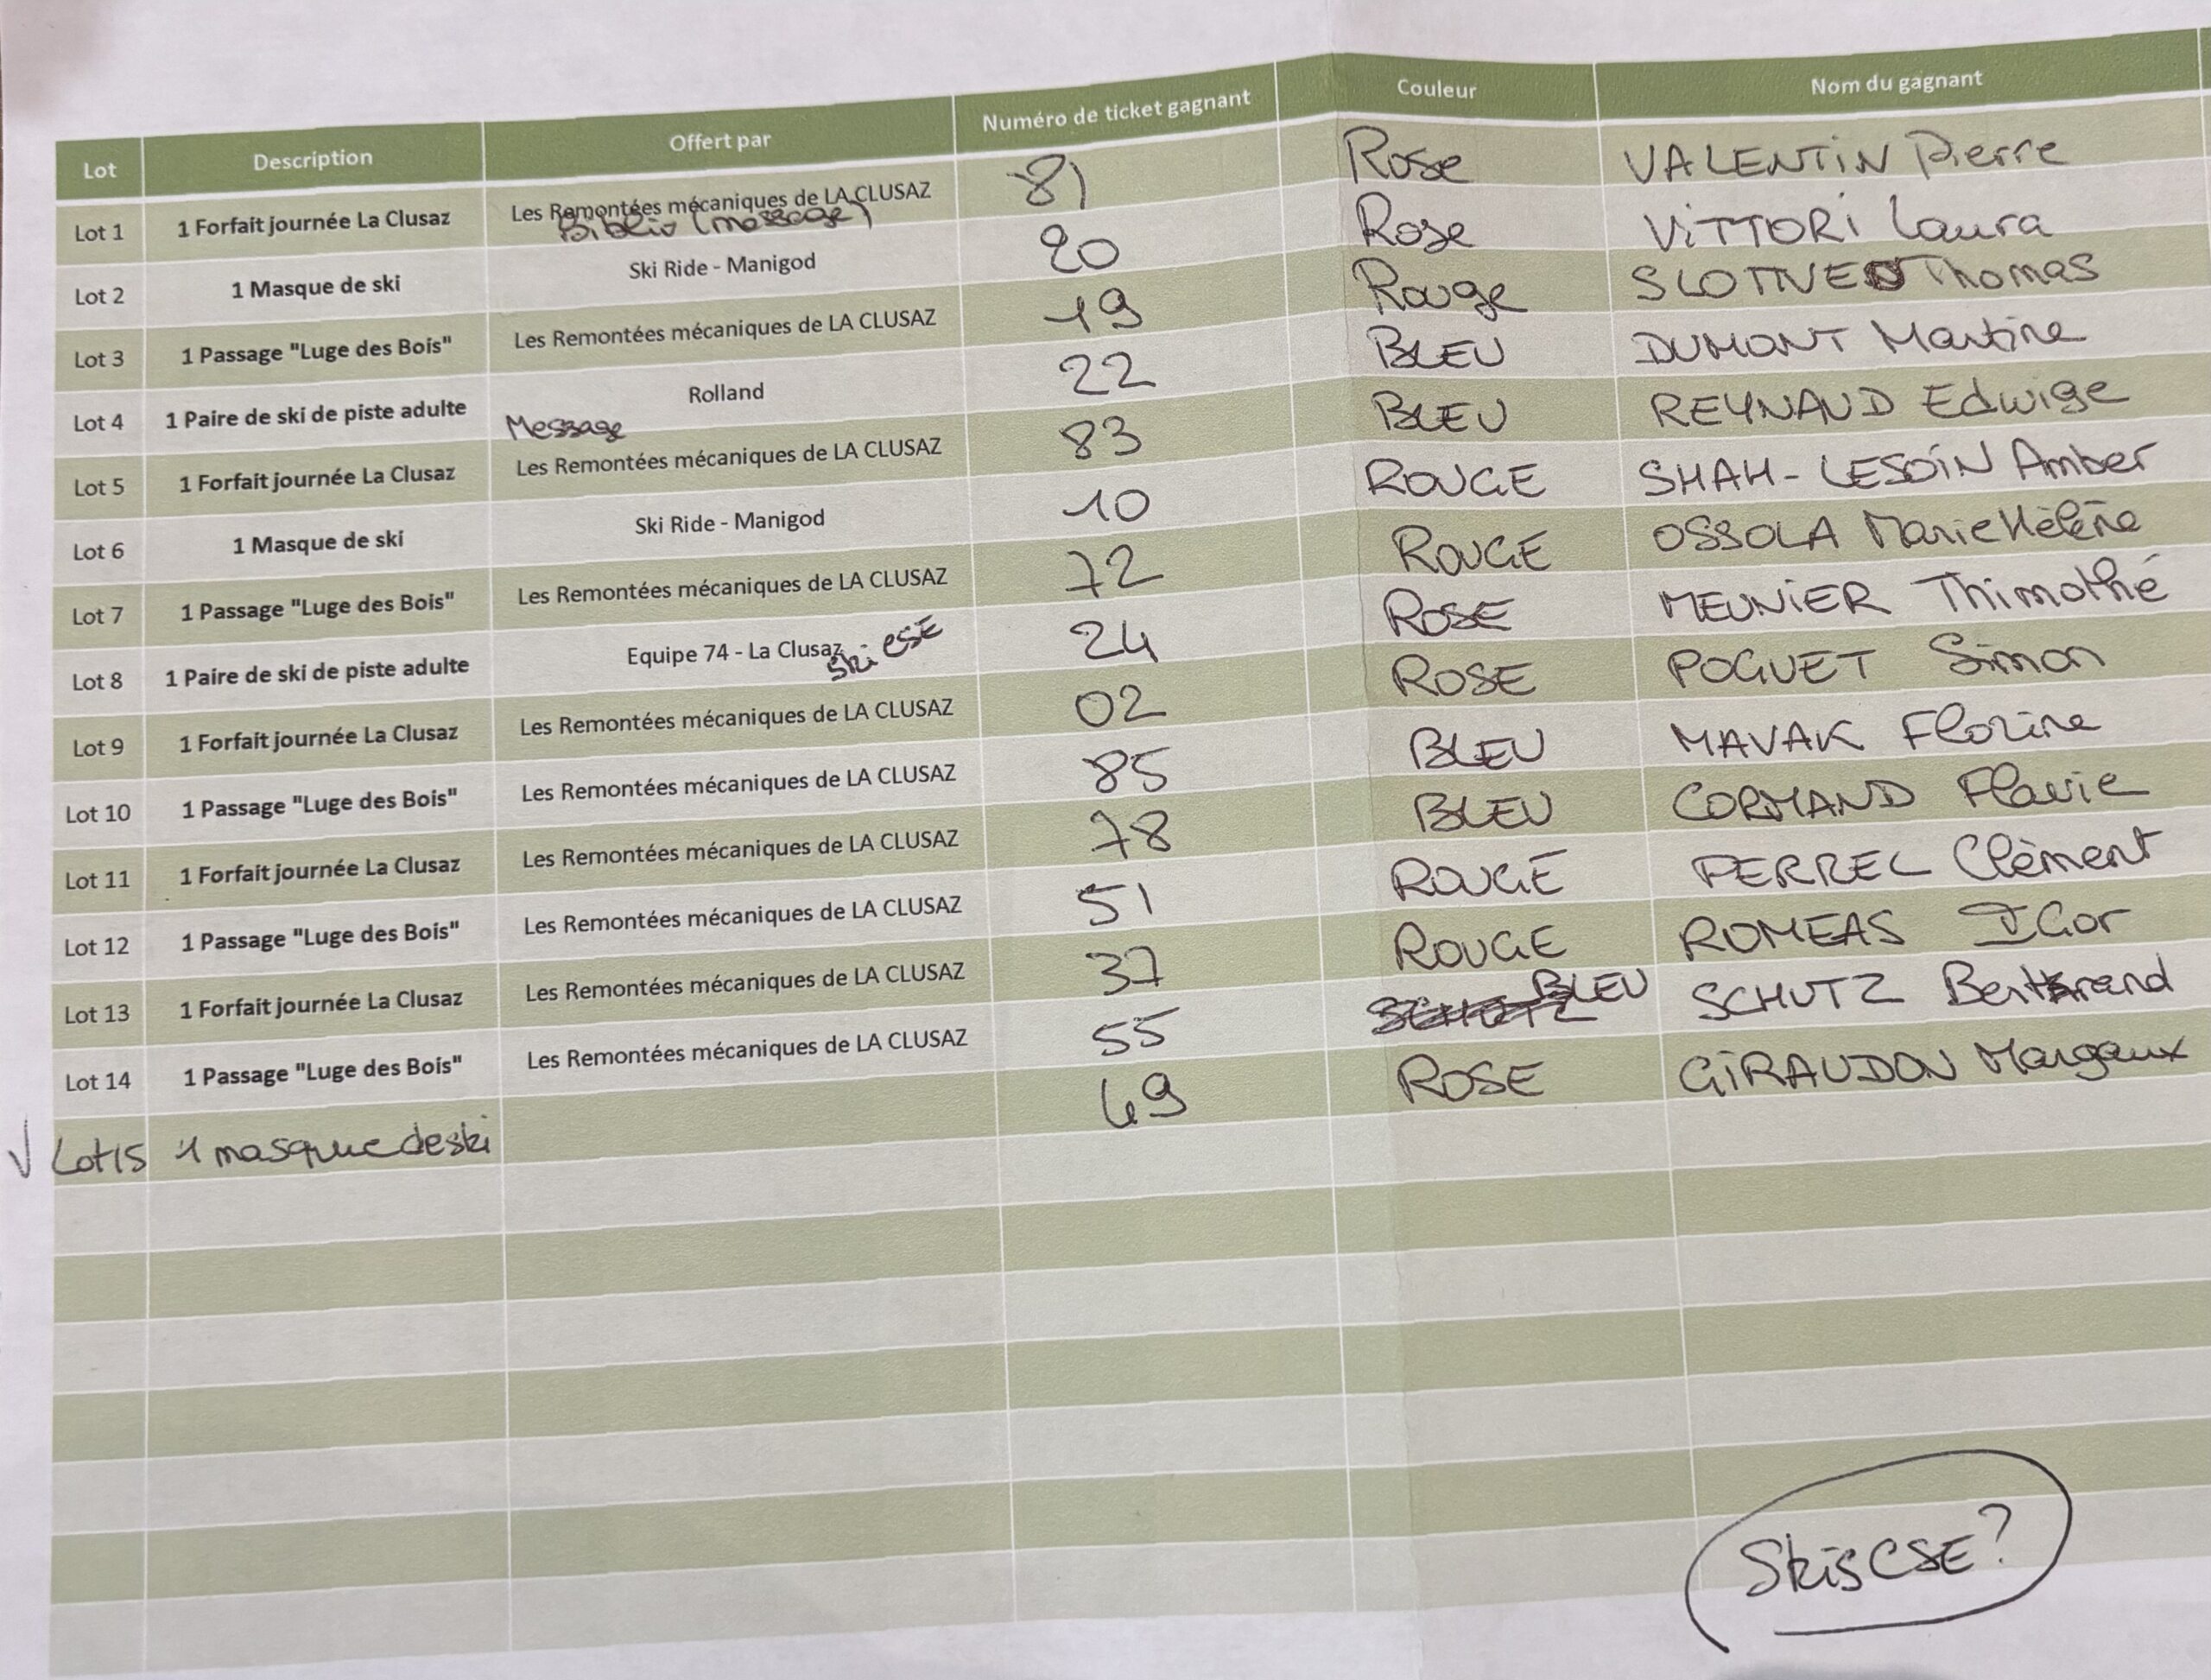 Lot Description Offert par Numéro de ticket gagnant Couleur Nom du gagnant
Lot 1 1 Forfait journée La Clusaz Les Remontées mécaniques de LA CLUSAZ 81 Rose VALENTIN Pierre
Biblio (message)
Lot 2 1 Masque de ski Ski Ride - Manigod 20 Rose ViTTORi Laura
Lot 3 1 Passage "Luge des Bois" Les Remontées mécaniques de LA CLUSAZ 19 Rouge Thomas
Lot 4 1 Paire de ski de piste adulte Rolland 22 BLEU DUMONT Martine
Message
Lot 5 1 Forfait journée La Clusaz Les Remontées mécaniques de LA CLUSAZ 83 BLEU REYNAUD Edwige
Lot 6 1 Masque de ski Ski Ride - Manigod 10 ROUGE SHAH-LESOIN Amber
Lot 7 1 Passage "Luge des Bois" Les Remontées mécaniques de LA CLUSAZ 72 ROUGE OSSOLA Marie Hélène
Lot 8 1 Paire de ski de piste adulte Equipe 74 - La Clusaz 24 ROSE MEUNIER Thimothé
ski
Lot 9 1 Forfait journée La Clusaz Les Remontées mécaniques de LA CLUSAZ 02 ROSE POGUET Simon
Lot 10 1 Passage "Luge des Bois" Les Remontées mécaniques de LA CLUSAZ 85 BLEU MAVAK Florine
Lot 11 1 Forfait journée La Clusaz Les Remontées mécaniques de LA CLUSAZ 78 BLEU CORMAND Flavie
Lot 12 1 Passage "Luge des Bois" Les Remontées mécaniques de LA CLUSAZ 51 ROUGE PERREL Clèment
Lot 13 1 Forfait journée La Clusaz Les Remontées mécaniques de LA CLUSAZ 37 ROUGE ROMEAS IGor
Lot 14 1 Passage "Luge des Bois" Les Remontées mécaniques de LA CLUSAZ 55 BLEU SCHUTZ Bertrand
Lot 15 1 masque de ski 49 ROSE GIRAUDON Margaux
Skis CSE?